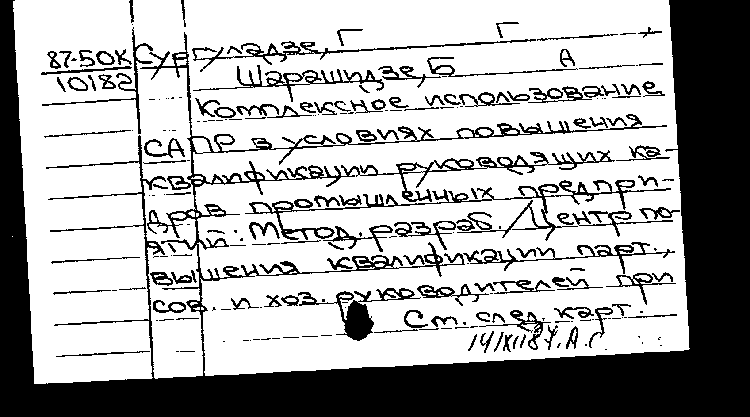 87-50К Сургуладзе, Г Г
10182 Шарашидзе, Б А
Комплексное использование
САПР в условиях повышения
квалификации руководящих ка-
дров промышленных предпри-
ятий: Метод. разраб. / Центр по-
вышения квалификации парт.,
сов. и хоз. руководителей при
См. след. карт.
14/XII87. А.С.